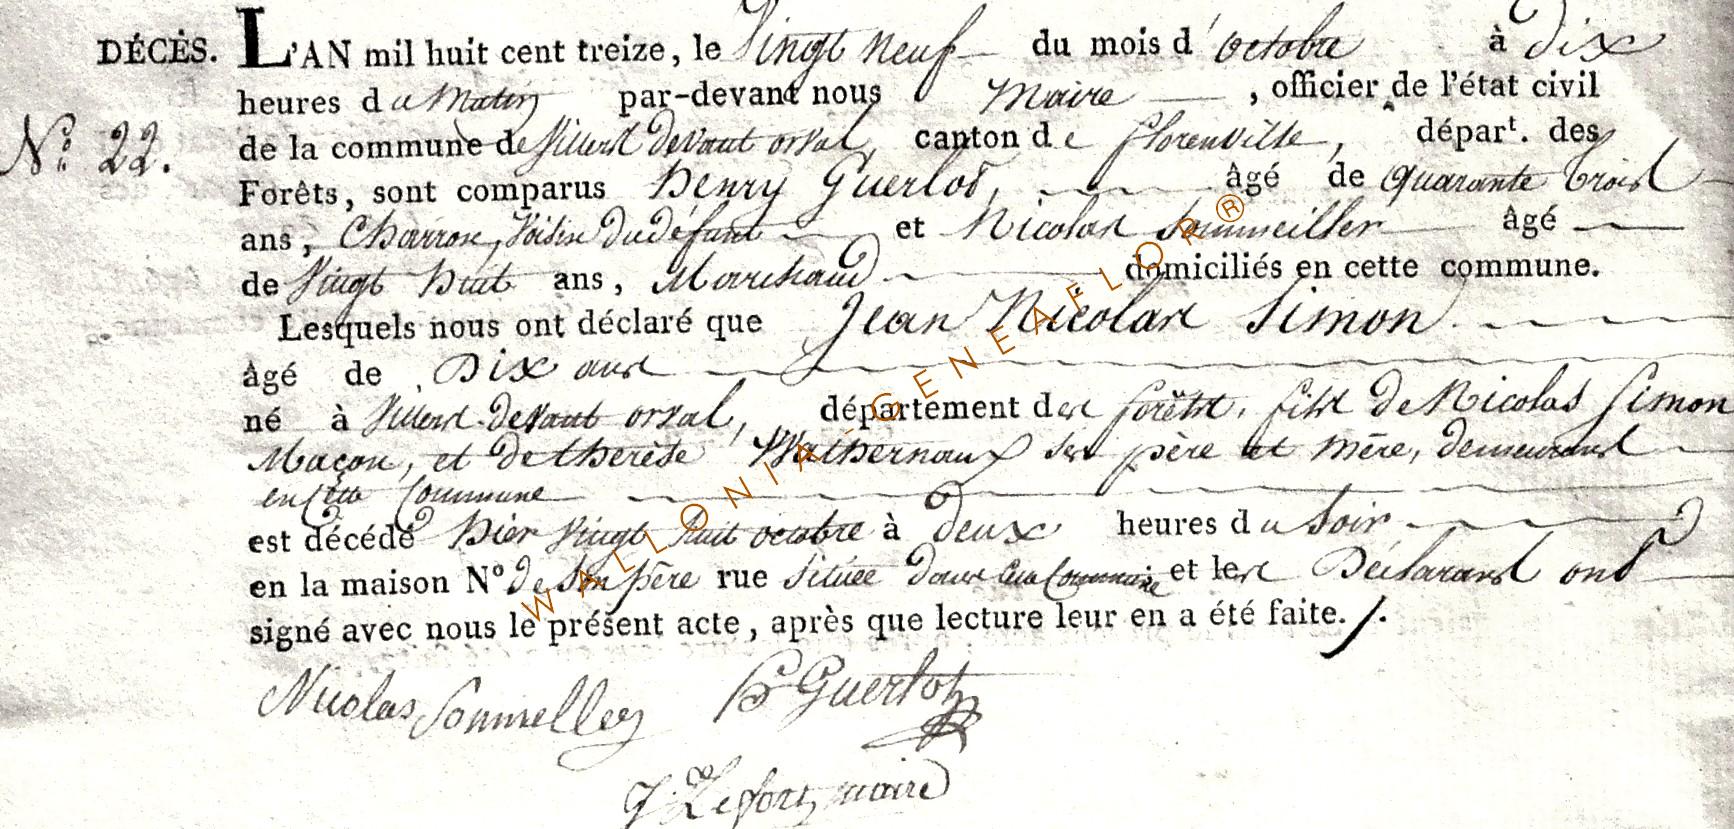 DÉCÈS. L'AN mil huit cent treize, le Vingt neuf du mois d'octobre à dix
heures du Matin par-devant nous Maire, officier de l'état civil
N.º 22. de la commune de Villers devant orval, canton de florenville, départ. des
Forêts, sont comparus henry Guerlot, âgé de quarante trois
ans, Charron, Voisin du défunt et Nicolas Sommeiller âgé
de Vingt huit ans, Marchand domiciliés en cette commune.
Lesquels nous ont déclaré que Jean Nicolas Simon
âgé de Dix ans
né à Villers devant orval, département des forêts, fils de Nicolas Simon
Maçon, et de therèse Wathernaux ses père et mère, demeurant
en cette Commune
est décédé hier Vingt huit octobre à deux heures du soir
en la maison Nº de son père rue située dans cette Commune et les Déclarans ont
signé avec nous le présent acte, après que lecture leur en a été faite./.
Nicolas Sommelley H Guerlot
J. Lefort, maire
WALLONIA-GENEAFLOR®